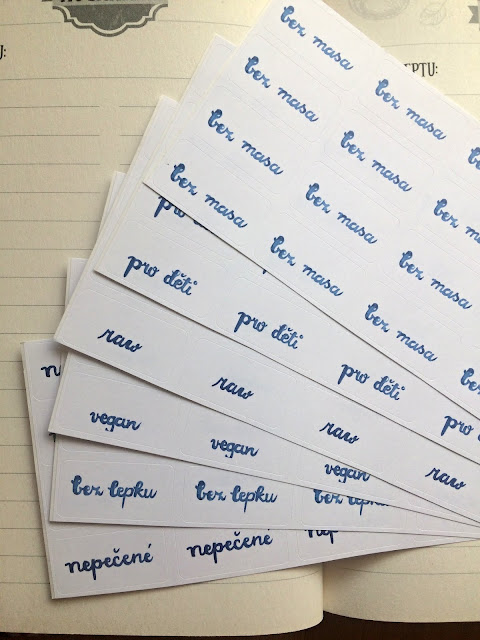 EPTU:
bez masa bez masa
bez masa bez masa bez
bez masa bez masa bez masa
bez masa bez masa bez masa be
pro
pro děti pro děti pro děti pro
raw raw raw raw
vegan vegan vegan
bez lepku bez lepku bez lepku
nepečené nepečené nep